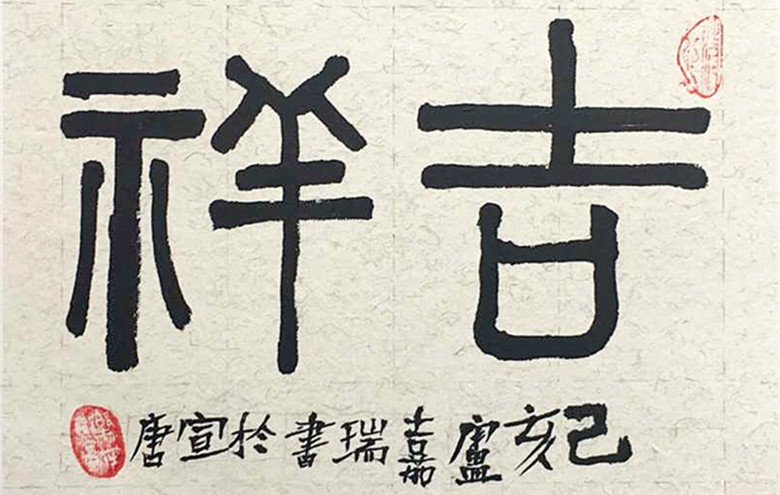 吉祥
己亥盧嘉瑞書於宣唐